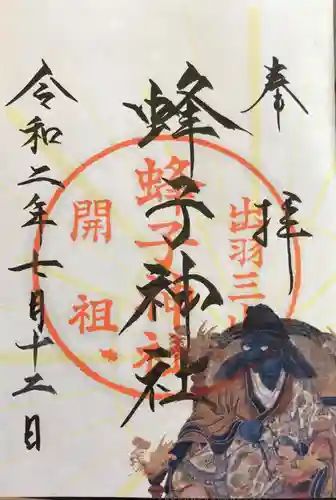 奉拝
蜂子神社
令和二年七月十二日
出羽三山
蜂子神社
開祖